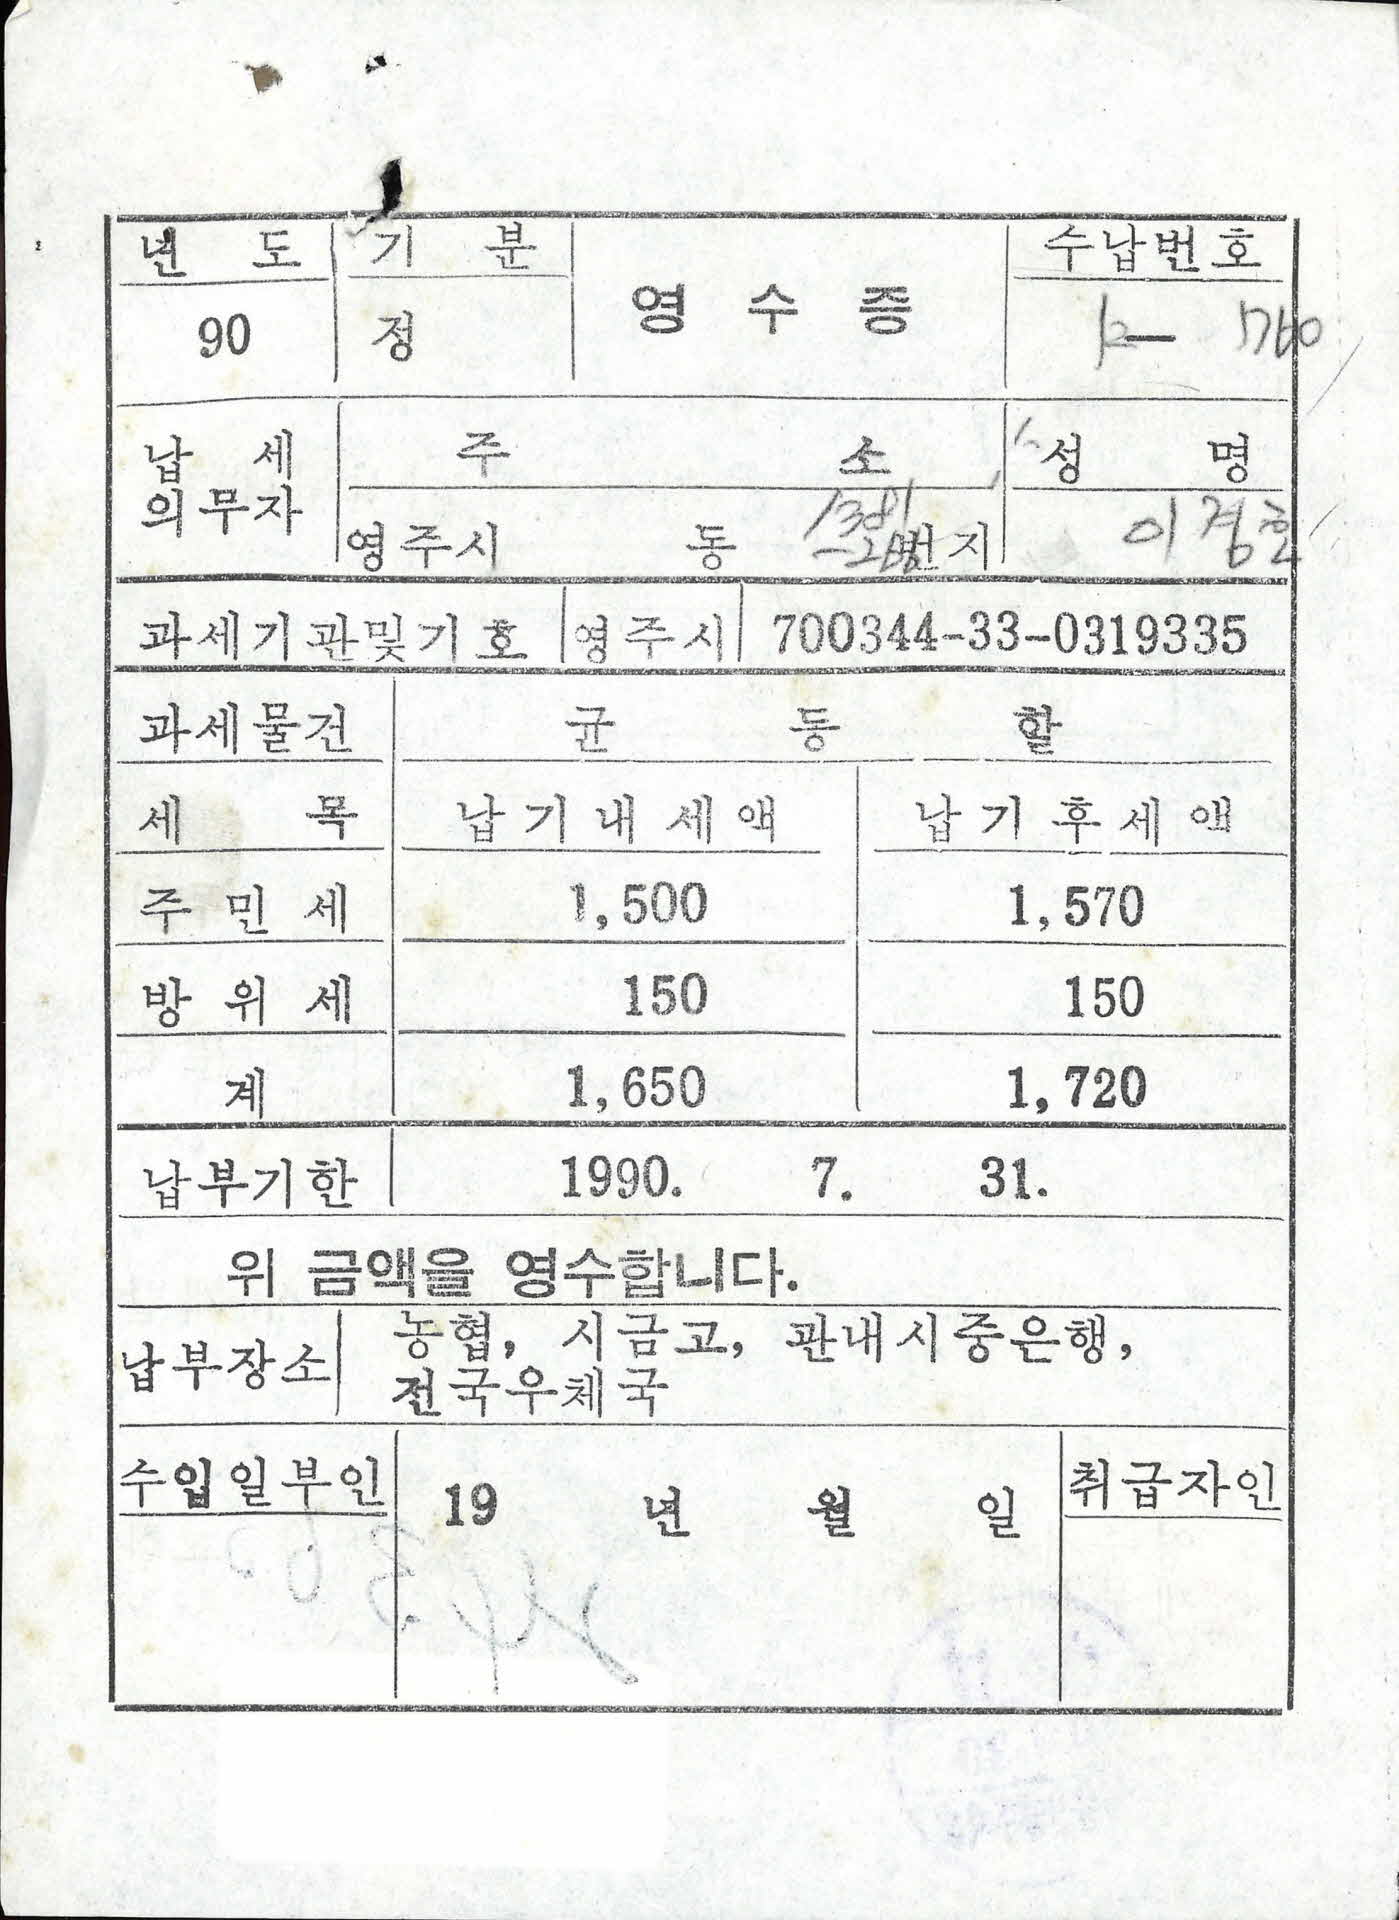 년 도 기 분 영 수 증 수납번호
90 정 12— 1760
납 세 의무자 주 소 성 명
영주시 동 1381 번지 이경호
과세기관및기호 영주시 700344-33-0319335
과세물건 균 등 할
세 목 납기내세액 납기후세액
주 민 세 1,500 1,570
방 위 세 150 150
계 1,650 1,720
납부기한 1990. 7. 31.
위 금액을 영수합니다.
납부장소 농협, 시금고, 관내시중은행,
전국우체국
수입일부인 19 년 월 일 취급자인